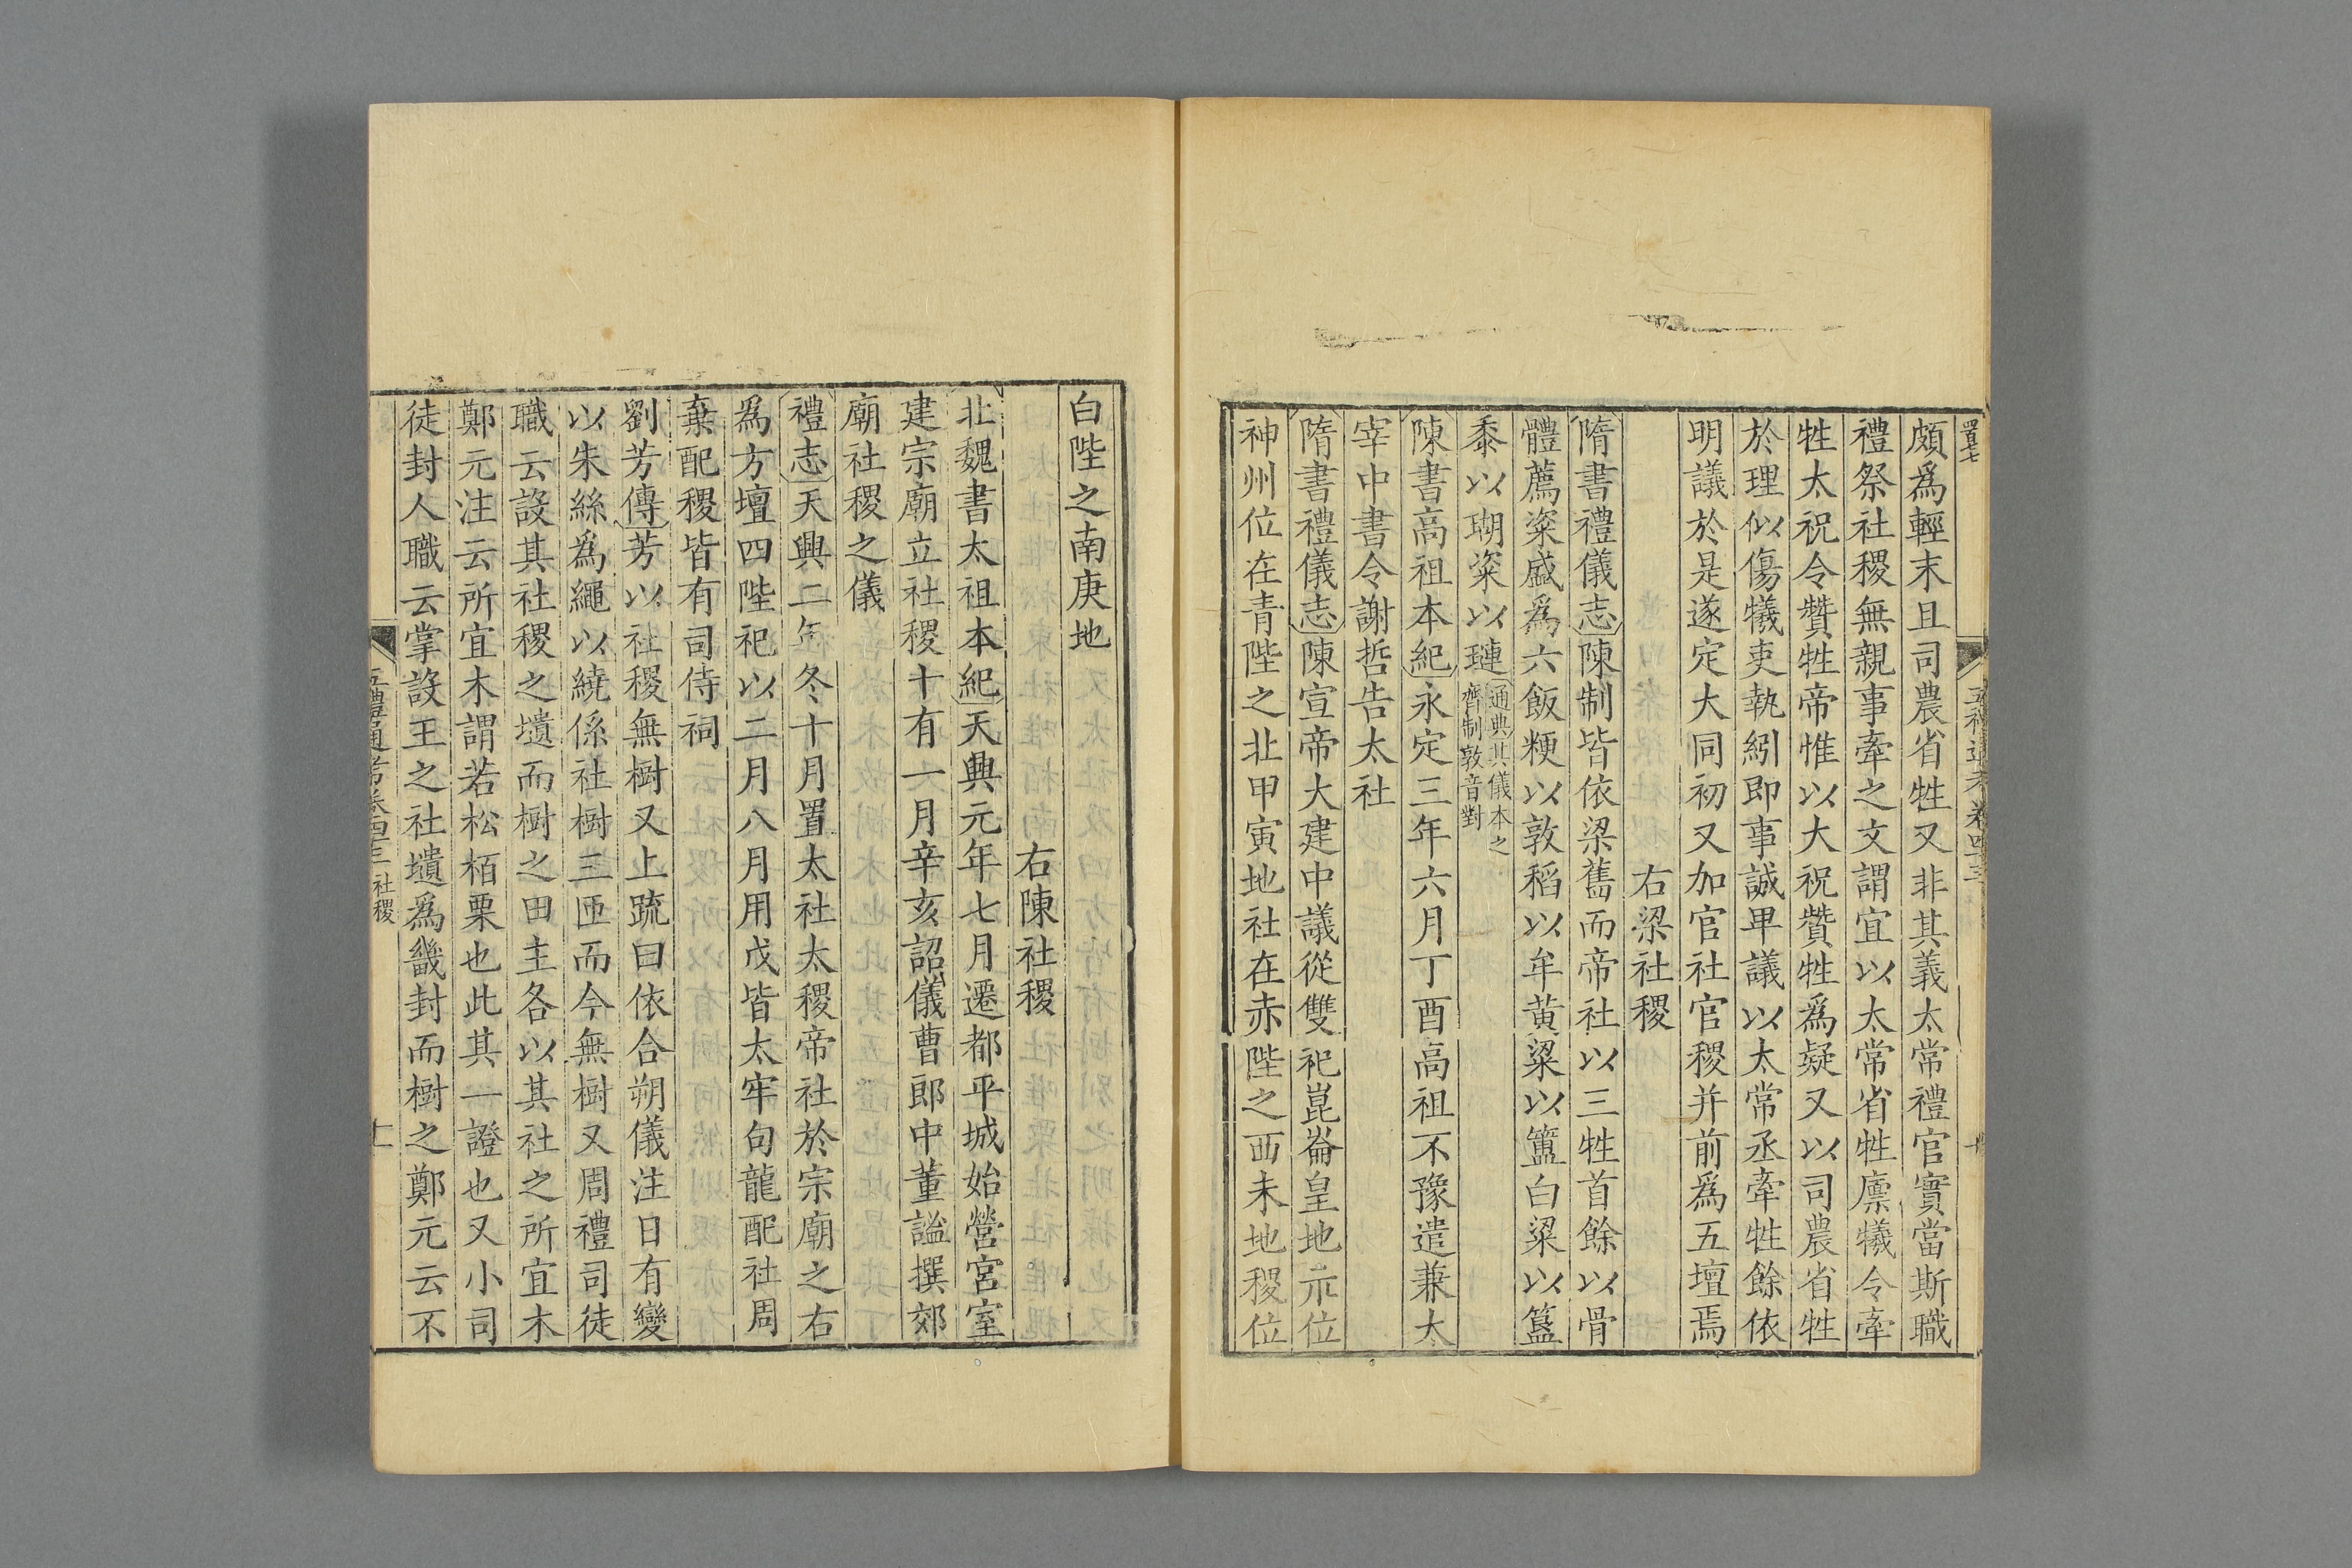 頗爲輕末且司農省牲又非其義太常禮官實當斯職
禮祭社稷無親事牽之文謂宜以太常省牲廩犧令牽
牲太祝令贊牲帝惟以大祝贊牲爲疑又以司農省牲
於理似傷犧吏執紖即事誠卑議以太常丞牽牲餘依
明議於是遂定大同初又加官社官稷并前爲五壇焉
右梁社稷
隋書禮儀志陳制皆依梁舊而帝社以三牲首餘以骨
體薦粢盛爲六飯粳以敦稻以牟黃粱以簠白粱以簋
黍以瑚粢以璉通典其儀本之
齊制敦音對
陳書高祖本紀永定三年六月丁酉高祖不豫遣兼太
宰中書令謝哲告太社
隋書禮儀志陳宣帝大建中議從雙祀崑崙皇地示位
神州位在青陛之北甲寅地社在赤陛之西未地稷位
白陛之南庚地
右陳社稷
北魏書太祖本紀天興元年七月遷都平城始營宮室
建宗廟立社稷十有一月辛亥詔儀曹郎中董謐撰郊
廟社稷之儀
禮志天興二年冬十月置太社太稷帝社於宗廟之右
爲方壇四陛祀以二月八月用戊皆太牢句龍配社周
棄配稷皆有司侍祠
劉芳傳芳以社稷無樹又上疏曰依合朔儀注日有變
以朱絲爲繩以繞係社樹三匝而今無樹又周禮司徒
職云設其社稷之壝而樹之田主各以其社之所宜木
鄭元注云所宜木謂若松栢栗也此其一證也又小司
徒封人職云掌設王之社壝爲畿封而樹之鄭元云不
五禮通考卷四十三 社稷
十一